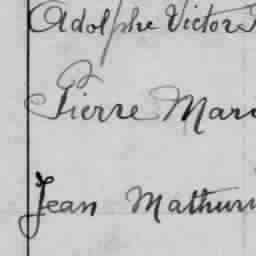 Adolphe Victor
Pierre Mari
Jean Mathuri